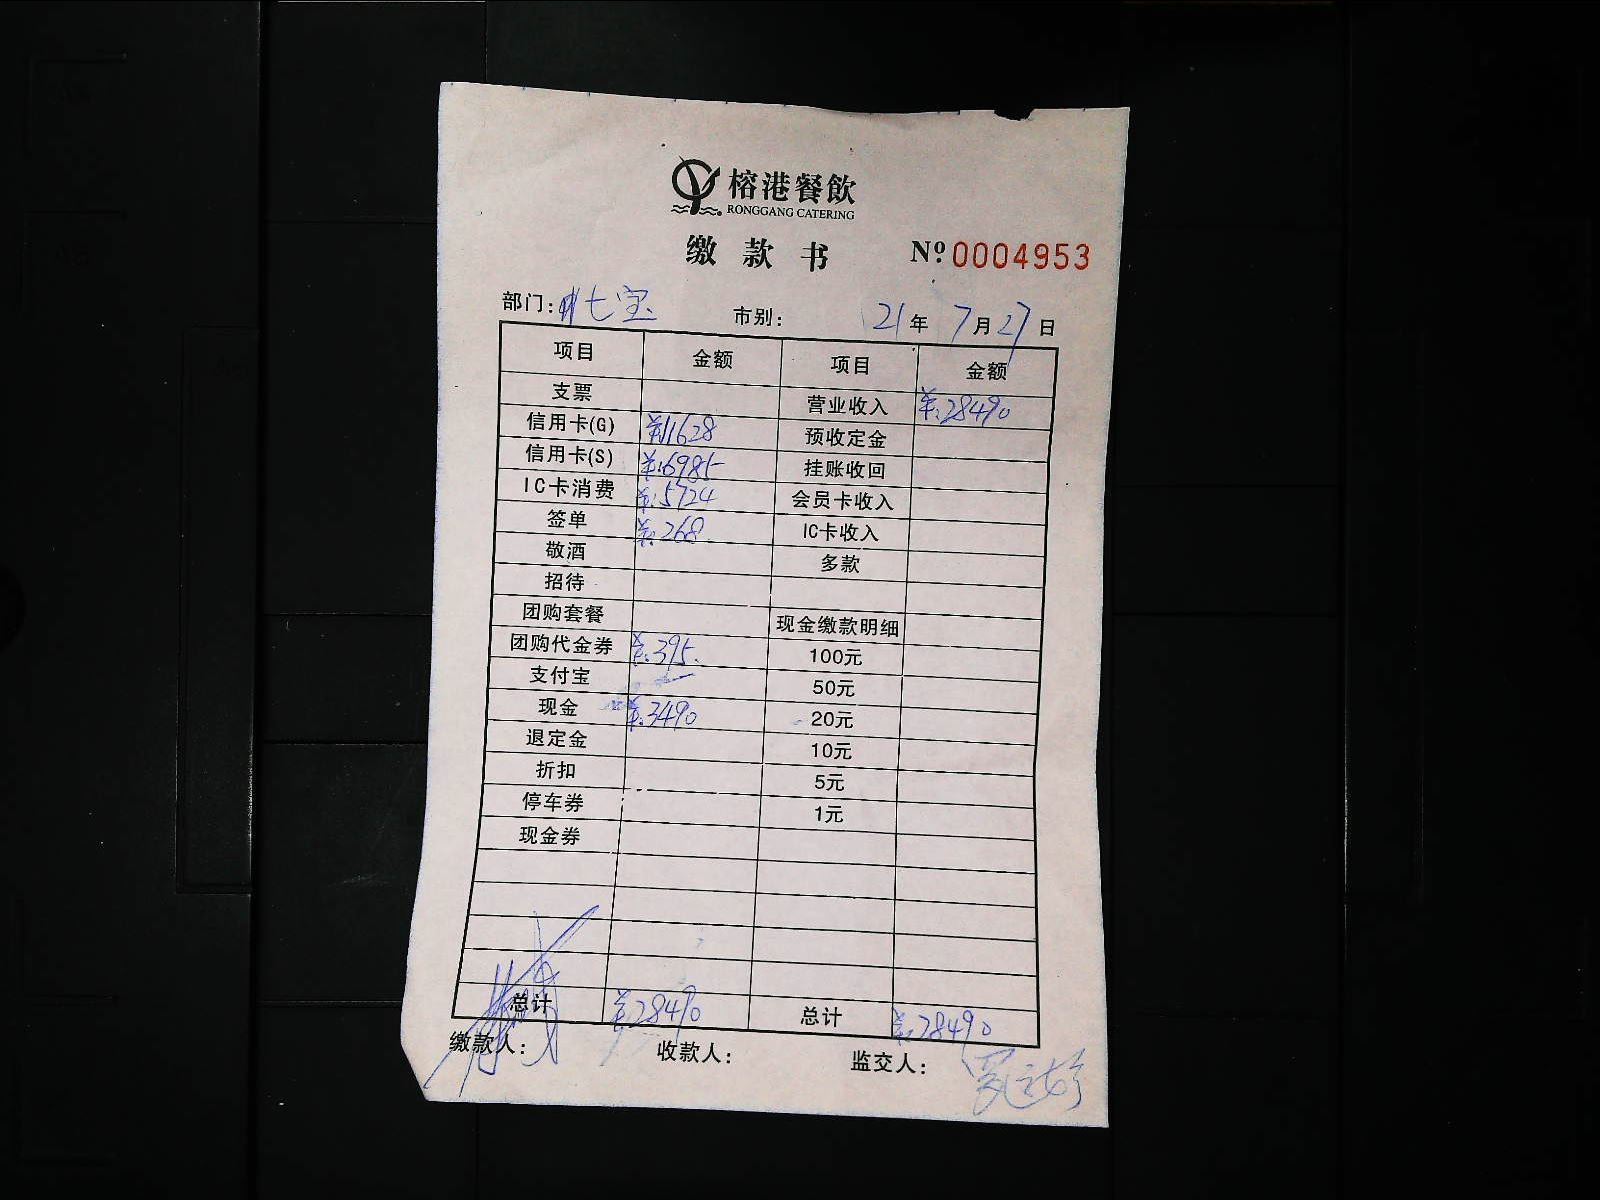 榕港餐飲
RONGGANG CATERING
缴款书 Nº:0004953
部门: 七宝 市别: 21年 7月27日
项目 金额 项目 金额
支票 营业收入 ¥:28490
信用卡(G) ¥11628 预收定金
信用卡(S) ¥:6985 挂账收回
IC卡消费 ¥:5724 会员卡收入
签单 ¥:268 IC卡收入
敬酒 多款
招待
团购套餐 现金缴款明细
团购代金券 ¥:395. 100元
支付宝 50元
现金 ¥:3490 20元
退定金 10元
折扣 5元
停车券 1元
现金券
总计 ¥:28490 总计 ¥:28490
缴款人: 收款人: 监交人: